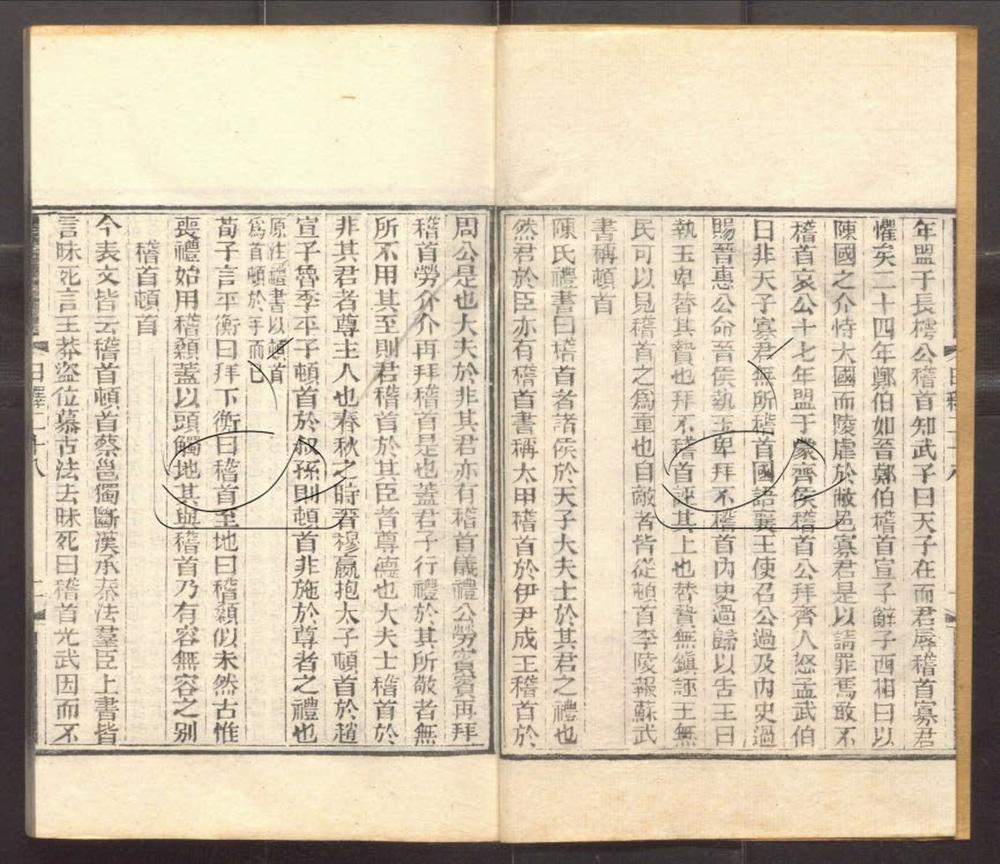 年盟于長樗公稽首知武子曰天子在而君辱稽首寡君
懼矣二十四年鄭伯如晉鄭伯稽首宣子辭子西相曰以
陳國之介恃大國而陵虐於敝邑寡君是以請罪焉敢不
稽首哀公十七年盟于蒙齊侯稽首公拜齊人怒孟武伯
曰非天子寡君無所稽首國語襄王使召公過及內史過
賜晉惠公命晉侯執玉卑拜不稽首內史過歸以告王曰
執玉卑替其贄也拜不稽首誣其上也替贄無鎮誣王無
民可以見稽首之為重也自敵者皆從頓首李陵報蘇武
書稱頓首
陳氏禮書曰稽首者諸侯於天子大夫士於其君之禮也
然君於臣亦有稽首書稱太甲稽首於伊尹成王稽首於
周公是也大夫於非其君亦有稽首儀禮公勞賓賓再拜
稽首勞介介再拜稽首是也蓋君子行禮於其所敬者無
所不用其至則君稽首於其臣者尊德也大夫士稽首於
非其君者尊主人也春秋之時晉穆嬴抱太子頓首於趙
宣子魯季平子頓首於叔孫則頓首非施於尊者之禮也
原注禮書以頓首
為首頓於手而已
荀子言平衡曰拜下衡曰稽首至地曰稽顙似未然古惟
喪禮始用稽顙蓋以頭觸地其與稽首乃有容無容之別
稽首頓首
今表文皆云稽首頓首蔡邕獨斷漢承秦法羣臣上書皆
言昧死言王莽盜位慕古法去昧死曰稽首光武因而不
日釋二十八